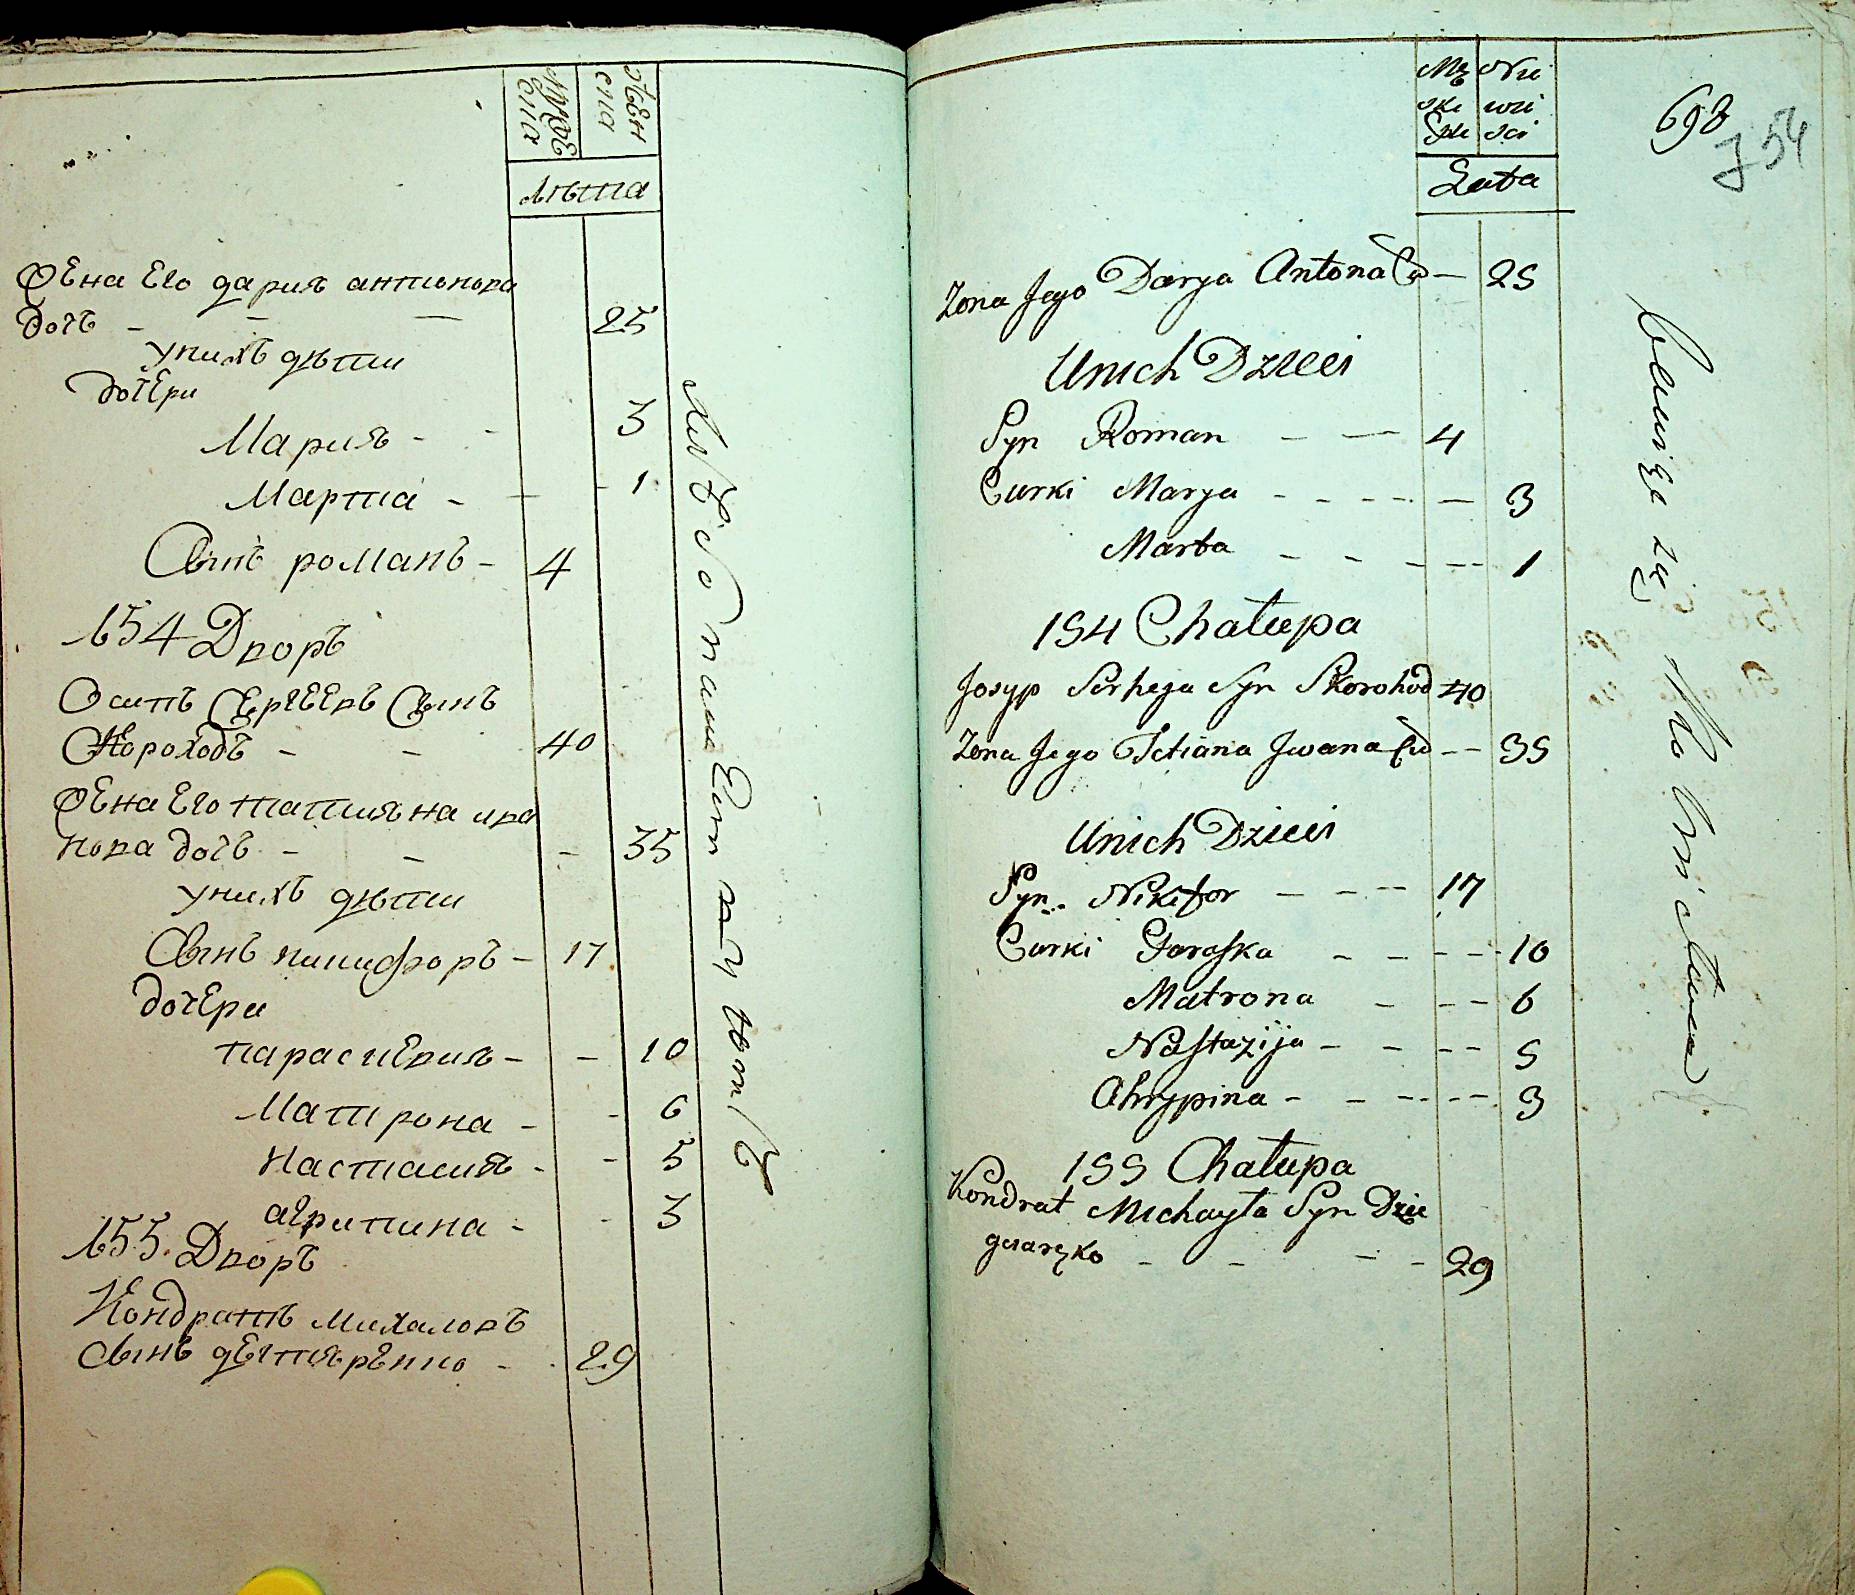 мужЕ
сна
жЕн
сна
лѣта
жЕна Его дария антонова
дочь - - - 25
у нихъ дѣти
дочЕри
Мария - - 3
Марта - - - 1
Сынъ романъ - 4
154 Дворъ
Осипъ СЕргЕЕвъ Сынъ
Скороходъ - - 40
жЕна Его татияна ива
нова дочь - - - 35
у нихъ дѣти
Сынъ никифоръ - 17
дочЕри
параскЕвия - - 10
Матрона - - 6
Настасия - - 5
агрипина - - 3
155 Дворъ
Кондратъ Михаловъ
Сынъ дЕгтярЕнко - - 29
Mę
skiey
Płci
Nie
wie
sci
Lata
698
754
Zona Jego Darya Antona Cor — 25
Unich Dzieci
Syn Roman - — 4
Curki Marya - - - - — 3
Marta - - - - - - 1
154 Chałupa
Josyp Serheja Syn Skorohod 40
Zona Jego Tetiana Jwana Cor - - 35
Unich Dzieci
Syn Nikifor - - - - 17
Curki Paraska - - - - - 10
Matrona - - - 6
Nastazija - - - - 5
Ahrypina - - - - - - 3
155 Chałupa
Kondrat Michayła Syn Dzie
gciareņko - - - - 29